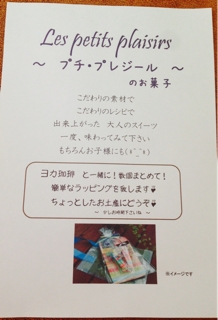 Les petits plaisirs
～ プチ・プレジール ～
のお菓子
こだわりの素材で
こだわりのレシピで
出来上がった 大人のスイーツ
一度、味わってみて下さい
もちろんお子様にも(*^_^*)
ヨカ珈琲 と一緒に！数個まとめて！
簡単なラッピングを致します
ちょっとしたお土産にどうぞ
～ 少しお時間下さいね ～
※イメージです